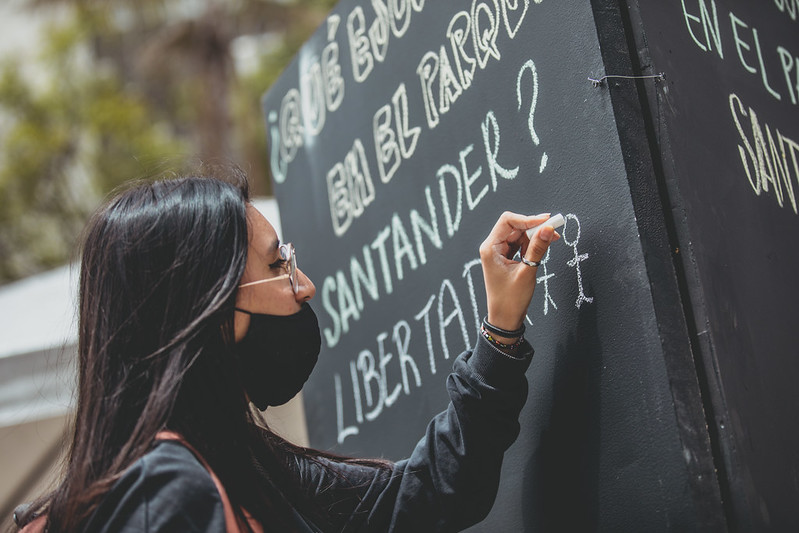 ¿QUÉ
EN EL PARQ
SANTANDER?
LIBERTAD
EN EL
SANT